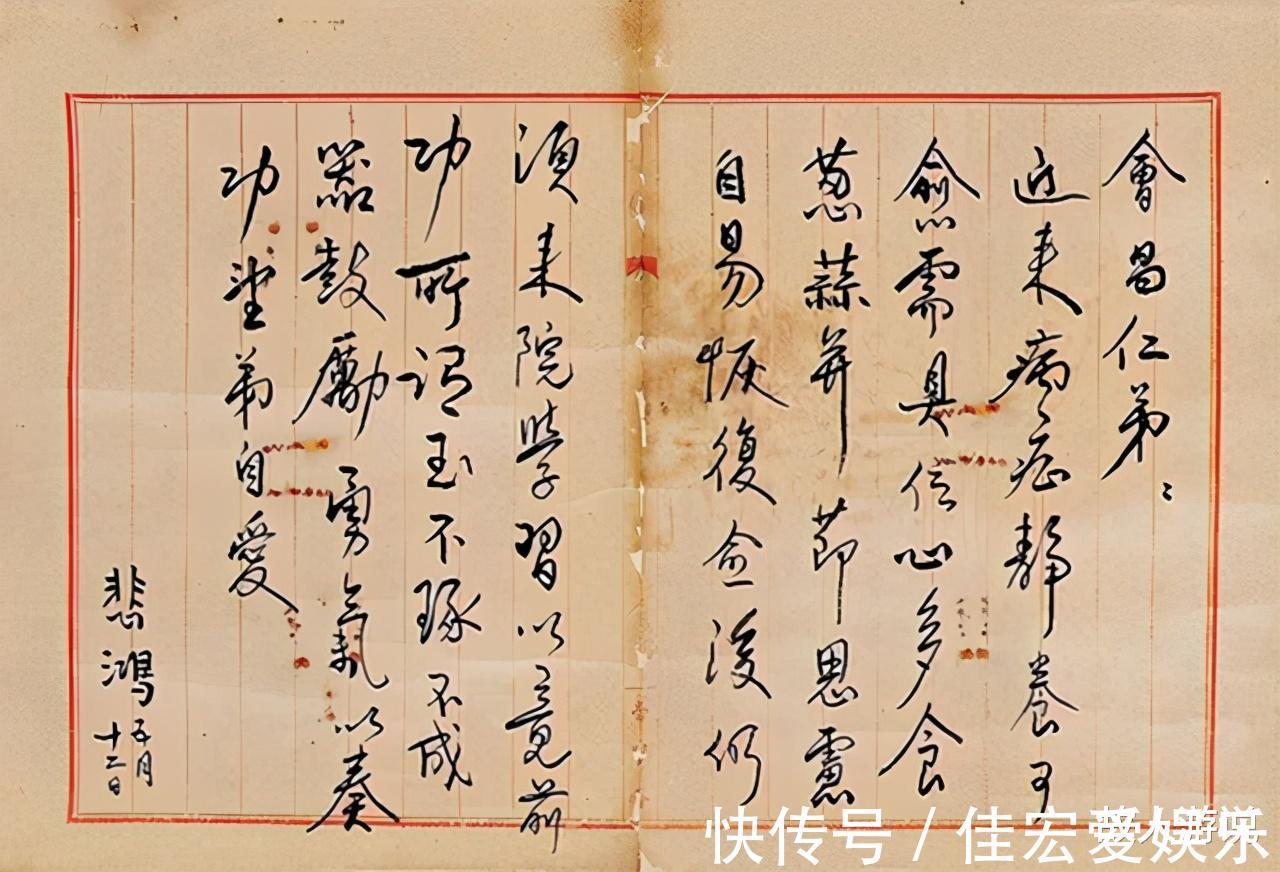 會昌仁弟:
近来病症静養可
愈需具信心多食
葱蒜并节思慮
自易恢復愈後仍
須来院學習以竟前
功所谓玉不琢不成
器鼓勵勇氣以奏
功望弟自愛
悲鴻 五月
十二日
快传号/佳宏爱娱乐